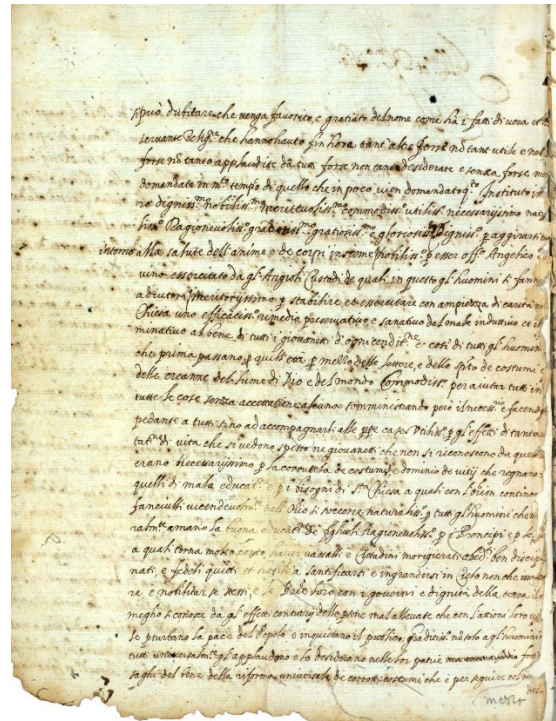 si può dubitare che venga favorito, e gratiato del nome come hà i fatti di nova et os
servante Relig.ne che hanno hauto fin hora tant'altre forse nò tant'utile e nob
forse nò tanto applaudite da tutti forse non tanto desiderate e senza forse mè
domandate in m.to tempo di quello che in poco vien domandato q.to Instituto
rio dignissmo nobiliss.mo meritevoliss.mo commodiss.mo utiliss.mo necessarijssimo
liss.mo Ragionevoliss.mo graditiss.mo gratiosiss.mo e gloriosiss.mo Digniss.mo p aggirarsi
intorno alla salute dell'anime e de corpi insieme, nobiliss.mo p esser offo Angelico
vino essercitato da gl'Angioli Custodi de quali in questo gl'huomini si fann
adiutori, Meritorijssimo p stabilire et essercitare con ampiezza di carità
Chiesa uno efficaciss.mo rimedio preservativo e sanativo del male
minativo al bene di tutti i giovanetti d'ogni condit.ne e così di tutti gl'huomini
che prima passano p quell'età p mezzo delle lettere, e dello sp.to de costumi e
delle creanze del lume di Dio e del mondo Commodiss.mo per aiutar tutti in
tutte le cose senza accettatione alcuna somministrando però il necess.rio e facendo
pedante a tutti sino ad accompagnarli alle p.pe case Utiliss.mo p gl'effetti di tante
tat.ni di vita che si vedono spesso ne giovanetti che non si riconoscono da que
erano Necessarijssimo p la corruttela de costumi e dominio de vitij che regnano
quelli di mala educat.ne p i bisogni di S.ta Chiesa a quali con l'or.on continoa
fanciulli vicendevolm.te nell'Or.io si soccorre naturaliss.mo p tutti gl'huomini che
ralm.te amano la buona educat.ne de figliuoli Ragionevoliss.mo p i Prencipi e p le
a quali torna molto conto haver vassalli e Cittadini morigerati obed.ti ben discipli
nati, e fedeli quieti et habili a santificarsi e ingrandirsi in Cielo non che
re e nobilitar se stessi, e le Patrie loro con i governi e dignità della terra il
meglio si conosce da gl'effetti contrarij delle p.sone mal allevate che con l'attioni loro
le p.turbano la pace de Popoli e inquietano il publico, graditiss.mo nò solo a gl'huomini
tutti universalm.te gl'applaudono e lo desiderano nelle lor patrie
saghi del bene della riforma universale de corrotti costumi che è per seguire
merzo